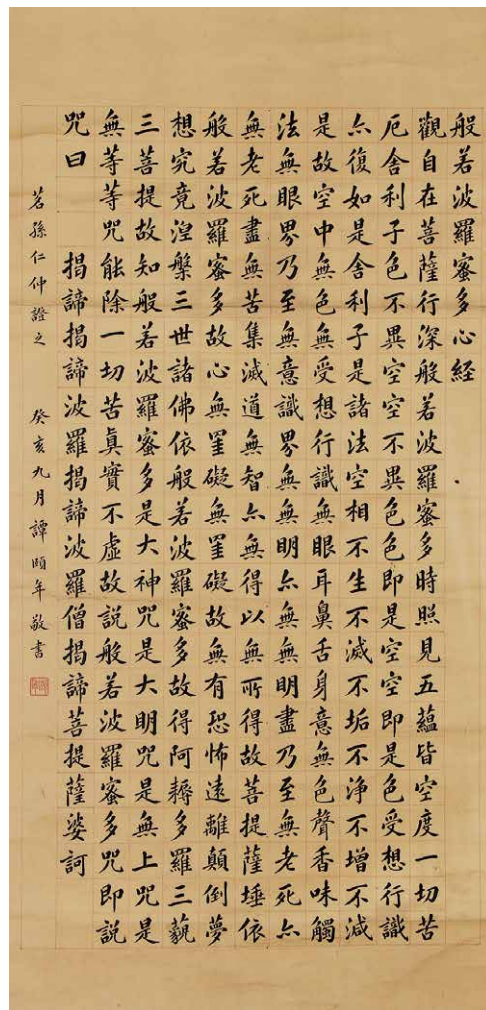 般若波羅蜜多心経
觀自在菩薩行深般若波羅蜜多時照見五蘊皆空度一切苦
厄舍利子色不異空空不異色色即是空空即是色受想行識
亦復如是舍利子是諸法空相不生不滅不垢不浄不增不減
是故空中無色無受想行識無眼耳鼻舌身意無色聲香味觸
法無眼界乃至無意識界無無明亦無無明盡乃至無老死亦
無老死盡無苦集滅道無智亦無得以無所得故菩提薩埵依
般若波羅蜜多故心無罣礙無罣礙故無有恐怖遠離顛倒夢
想究竟涅槃三世諸佛依般若波羅蜜多故得阿耨多羅三藐
三菩提故知般若波羅蜜多是大神咒是大明咒是無上咒是
無等等咒能除一切苦眞實不虛故說般若波羅蜜多咒即說
咒曰 揭諦揭諦波羅揭諦波羅僧揭諦菩提薩婆訶
茗孫仁仲證之 癸亥九月譚頤年敬書